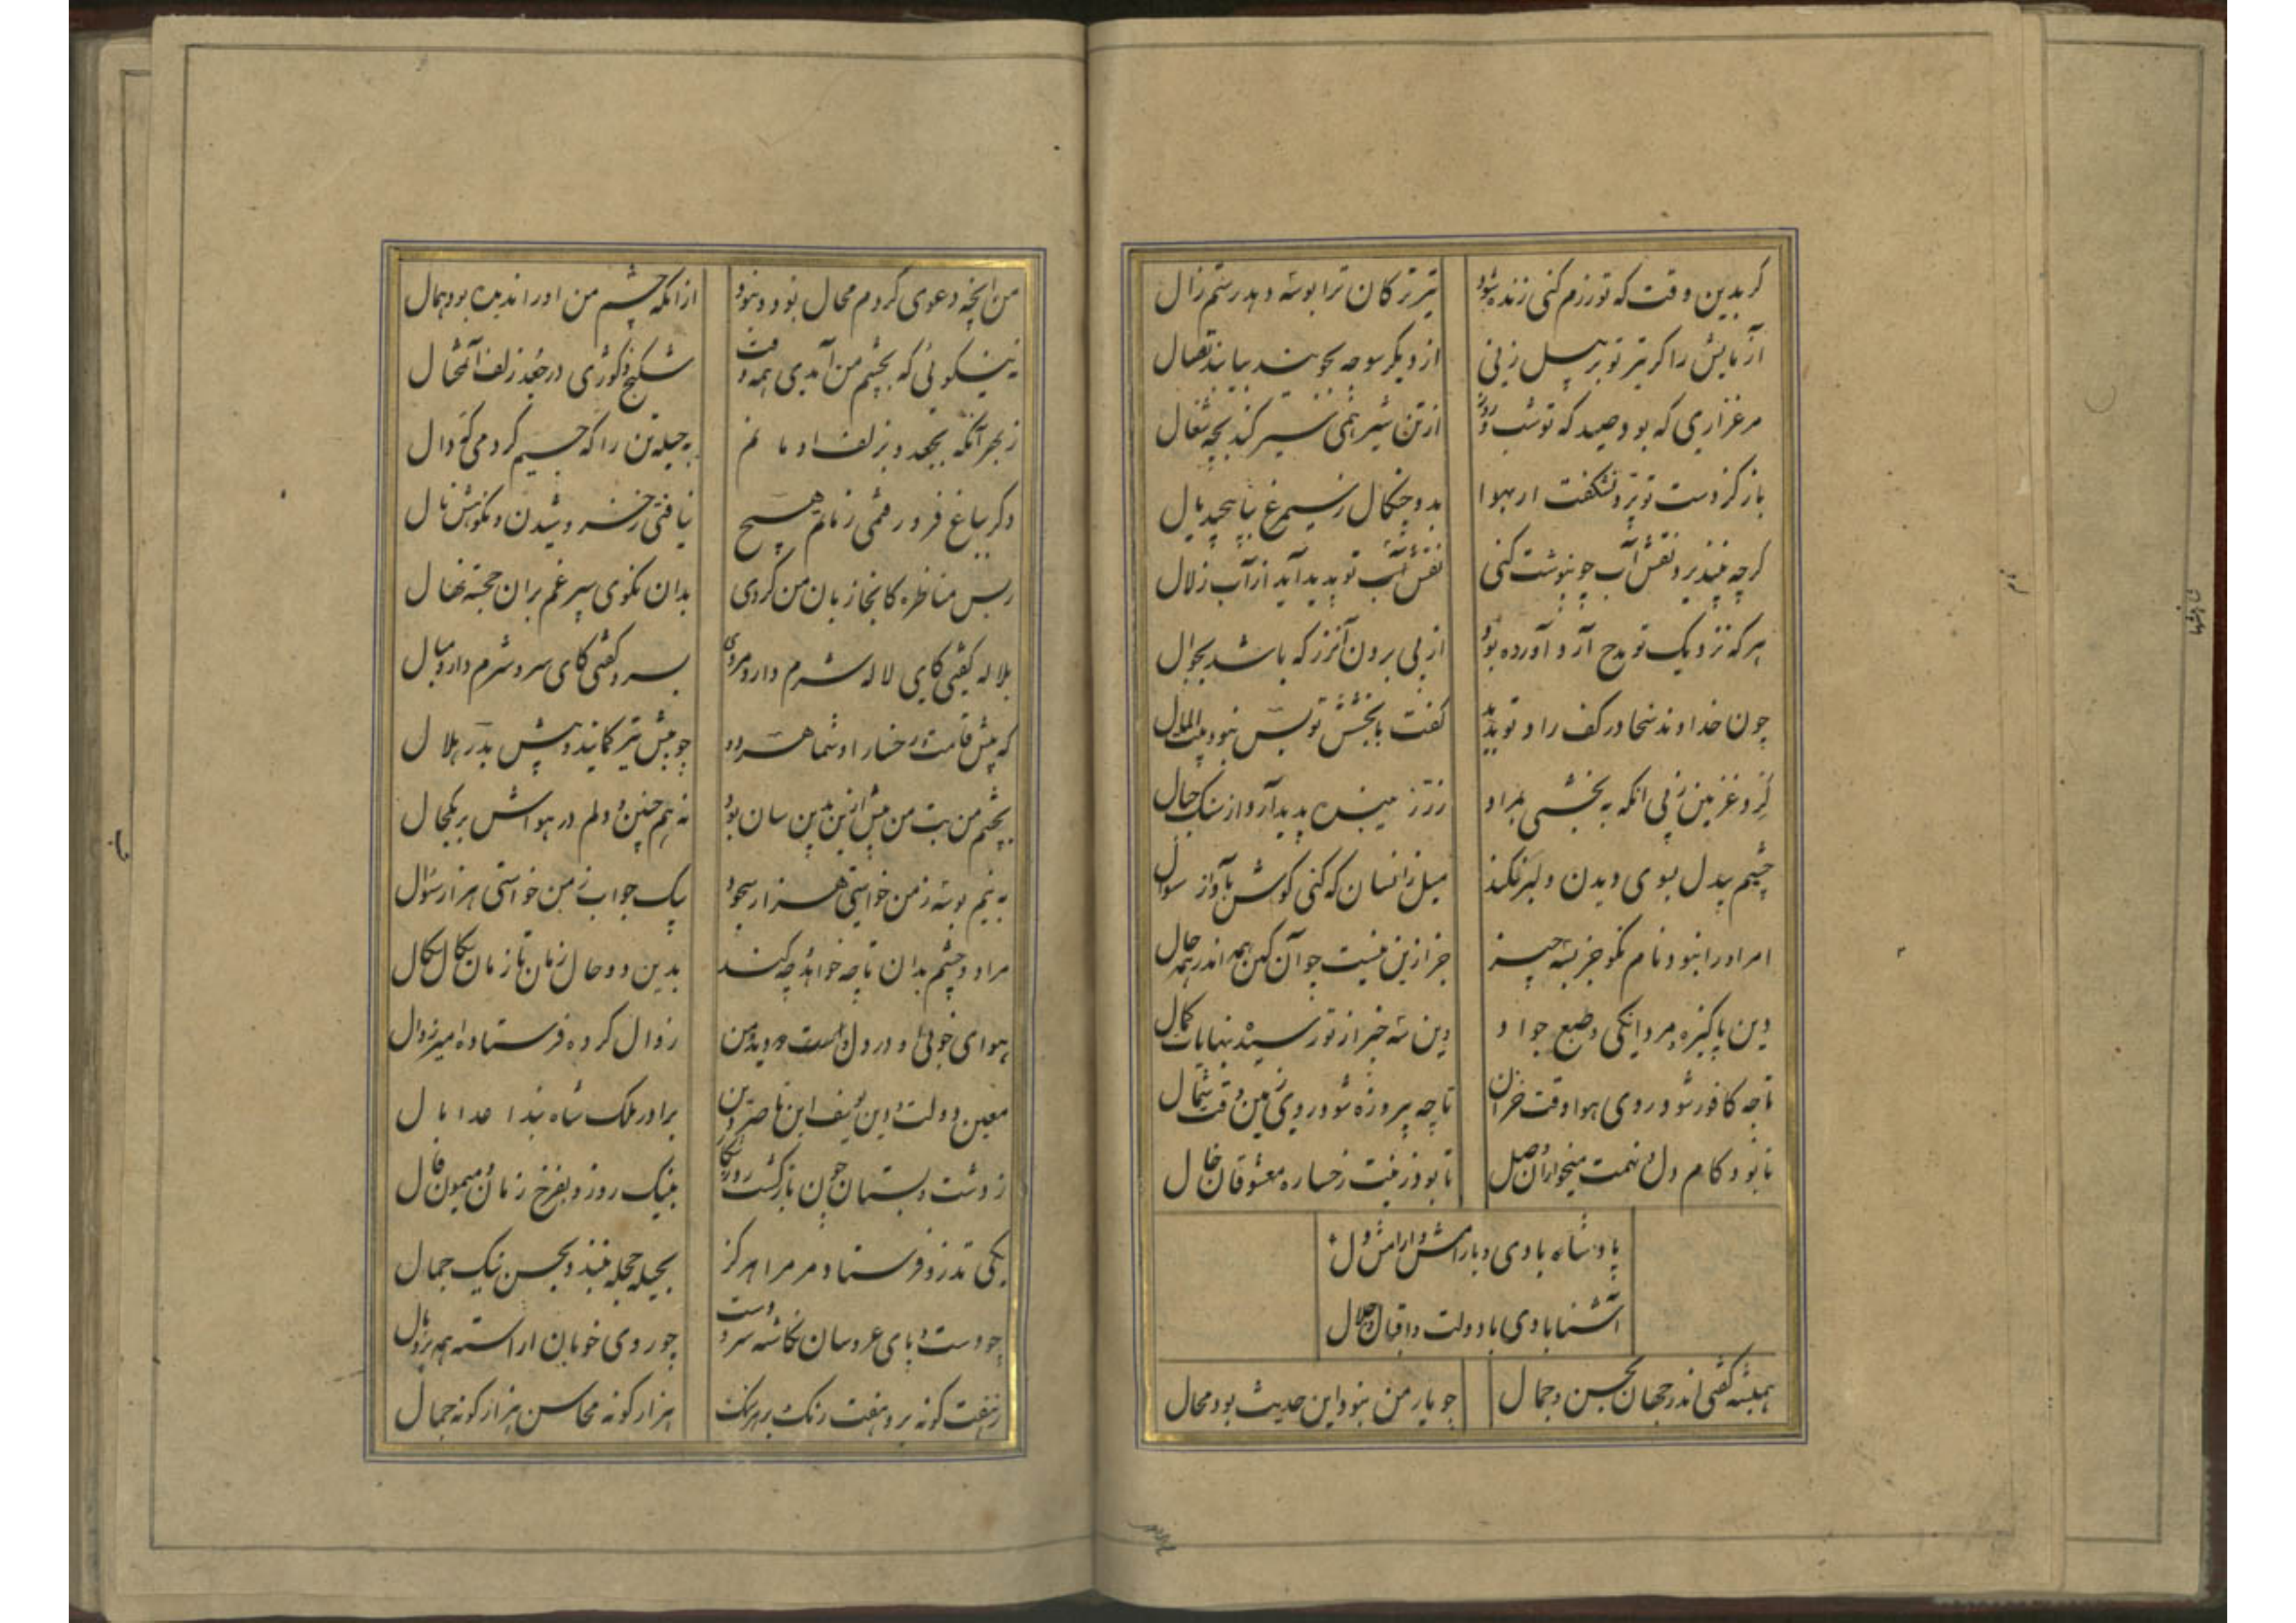 گر بدین وقت که تو رزم کنی زنده شود
تیر ترکان ترا بوسه دهد رستم زال
آزمایش را گر تیر تو بر پیل زنی
از دیگر سو چه بجویند بیابند نصال
مرغزاری که بود صید که تو شب و روز
از تن شیر همی سیر کند بچه شغال
باز کز دست تو پرد نشکفت ار بهوا
بدو چنگال ز سیمرغ بپیچد یال
گرچه نپذیرد نقش آب چو بنوشت کنی
نقش تو پدید آید از آب زلال
هر که نزدیک تو مدح آرد آورده بود
از پی بردن آن زر که باشد بجوال
چون خداوند سخا در کف راد تو بدید
گفت با بخشش تو بس نبود بیت المال
گر و غزنین زپی آنکه ببخشی بمراد
زر ز پدید آرد از سنگ جبال
چشم بیدل بسوی دیدن دلبر نکند
میل زانسان که کنی گوش بآواز سؤال
امرا را نبود نام نکو جز بسه چیز
جز ازین نیست جو آن کهن همه اندر همه حال
دین پاکیزه و مردانگی و طبع جواد
وین سه خبر از تو رسیده بنهایات کمال
تا چه کافور شود روی هوا وقت خزان
تا چه پیروزه شود روی زمین وقت شمال
تا بود کام دل و نهمت میخواران مل
تا بود زینت رخساره معشوقان خال
پادشاه بادی و با رامش و آرامش دل
آشنا بادی با دولت و اقبال و جلال
همیشه گفتی اندر جهان بحسن و جمال
چو یار من نبود این حدیث بود محال
من آنچه دعوی کردم محال بود و نبود
از آنکه چشم من او را ندیده بود همال
ز نیکوئی که بچشم من آمدی همه وقت
شکنج و کوژی در جعد زلف آن محتال
ز بهر آنکه بجعد و بزلف او مانم
به حیله تن را گه جیم کردمی گه دال
وگر بباغ فرو رفتمی زمانم هیچ
نیافتی ز خروشیدن و نکوهش نال
ز بس مناظره کانجا زبان من کردی
بدان نکوی سپرغم بران خجسته نهال
بلاله گفتی کای لاله شرم دار و مروی
بسرو گفتی کای سرو شرم دار و مبال
که پیش قامت و رخسار او شما هر دو
چو پیش تیر کمانید و پیش بدر هلال
بچشم من بت من پیش ازین بدین سان بود
نه هم چنین و دلم در هواش بر یکحال
به نیم بوسه ز من خواستی هزار سجود
بیک جواب ز من خواستی هزار سؤال
مرا دو چشم بدان تا چه خواهد و چه کند
بدین دو حال زمان تا زمان سکال سکال
هوای خوبی او در دل و در دیده من
زوال کرده فرستاده امیر زوال
معین دولت و دین یوسف ابن ناصر دین
برادر ملک شاه بند اعدا مال
ز دشت و بستان چون بازگشت روز شکار
بنیک روز و بفرخ زمان و میمون فال
یکی تذرو فرستاد مر مرا هرگز
بحیله حجله نبند و بحسن نیک جمال
چو دست و پای عروسان نگاشته سر و دست
چو روی خوبان اراسته همه پر و بال
ز هفت گونه برو هفت رنگ بر هر رنگ
هزار گونه محاسن هزار گونه جمال